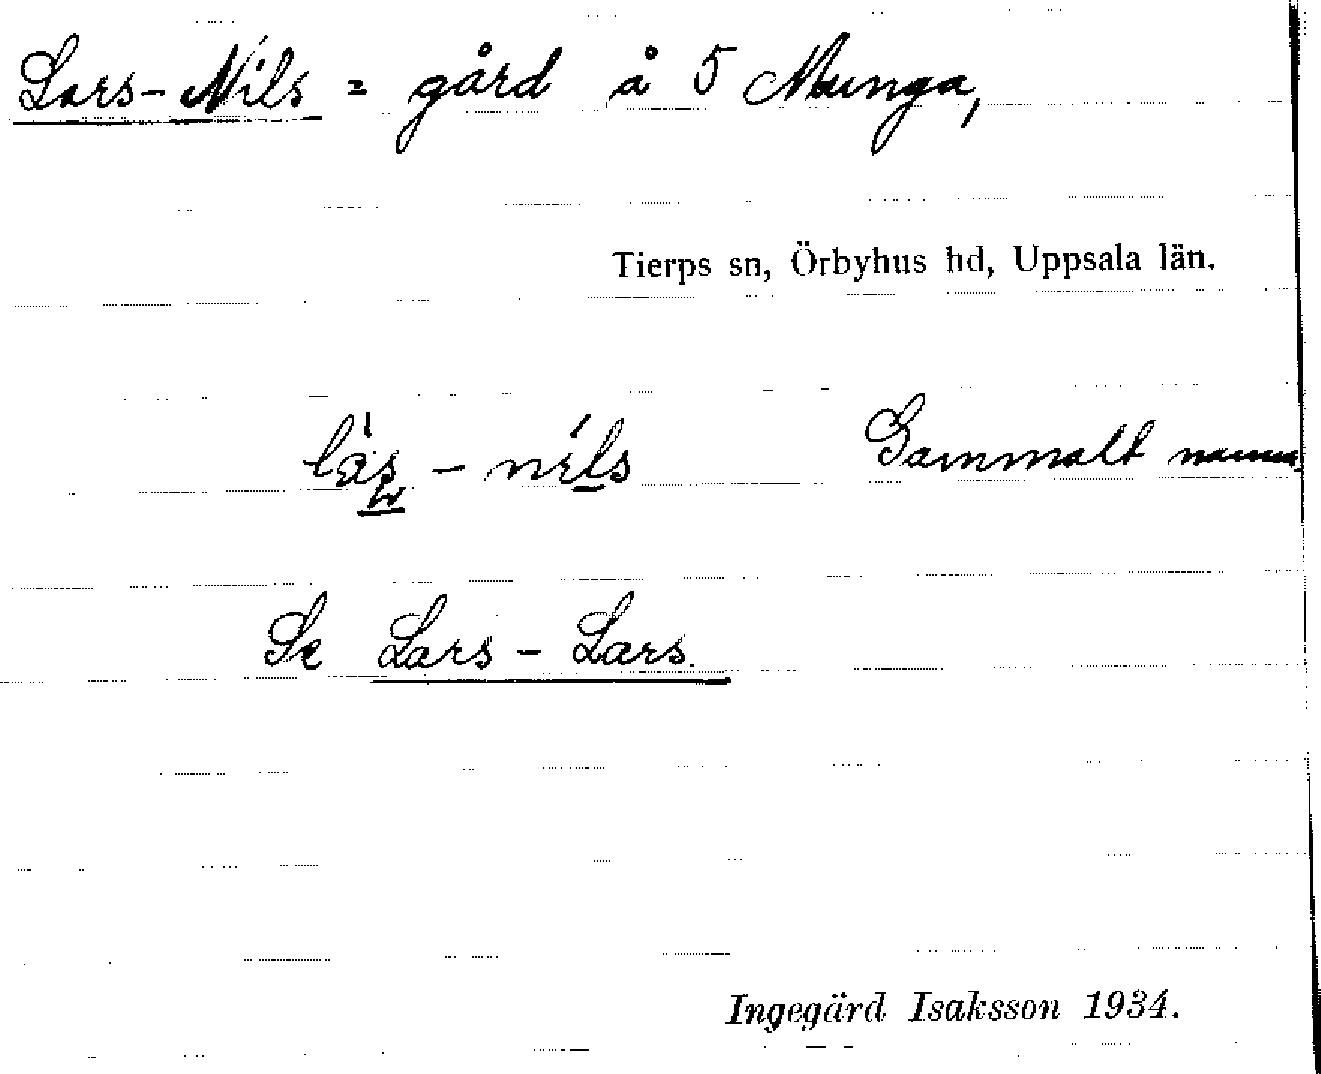 Lars-Nils = gård å 5 Munga,
Tierps sn, Örbyhus hd, Uppsala län.
la's - ni'ls Gammalt namn.
Se Lars - Lars.
Ingegärd Isaksson 1934.